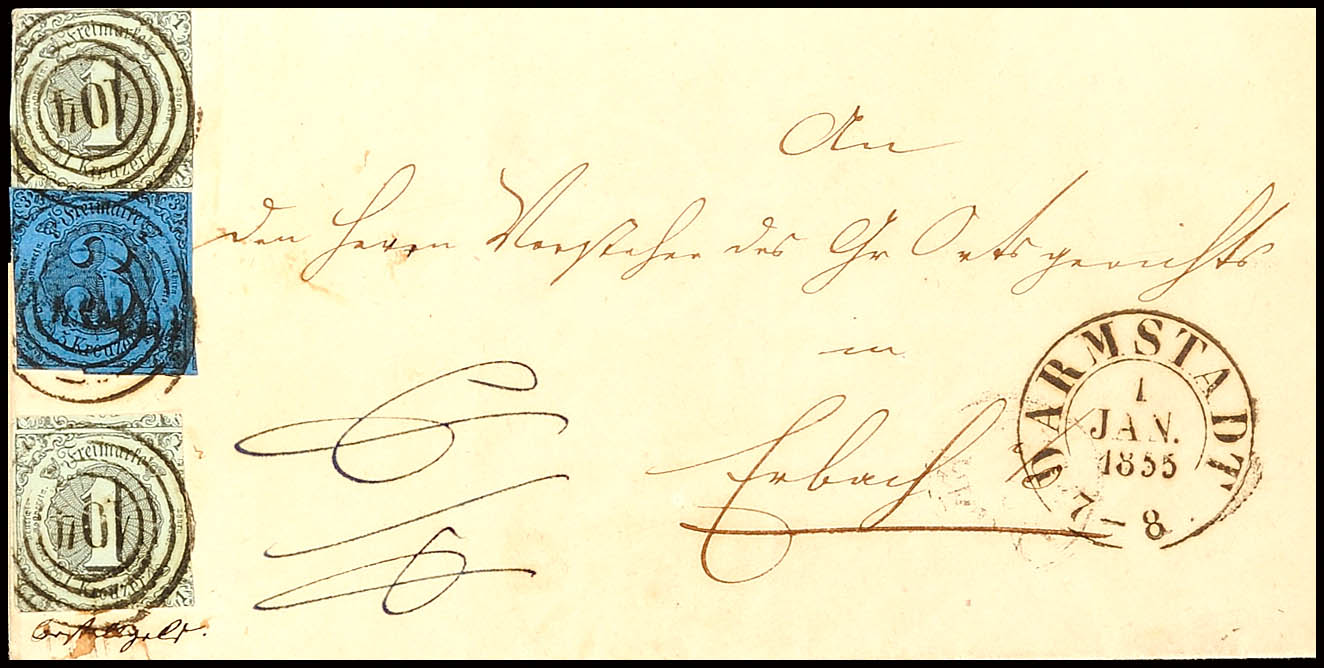 Freimarke
1
1 Kreuzer
104
Freimarke
3
3 Kreuzer
104
Freimarke
1
1 Kreuzer
104
Bestellgeld.
An
den Herrn Vorsteher des Gr Ortsgerichts
in
Erbach
DARMSTADT
1
JAN.
1855
7-8